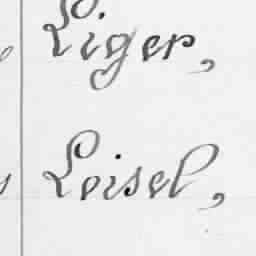 Liger,
Loisel,